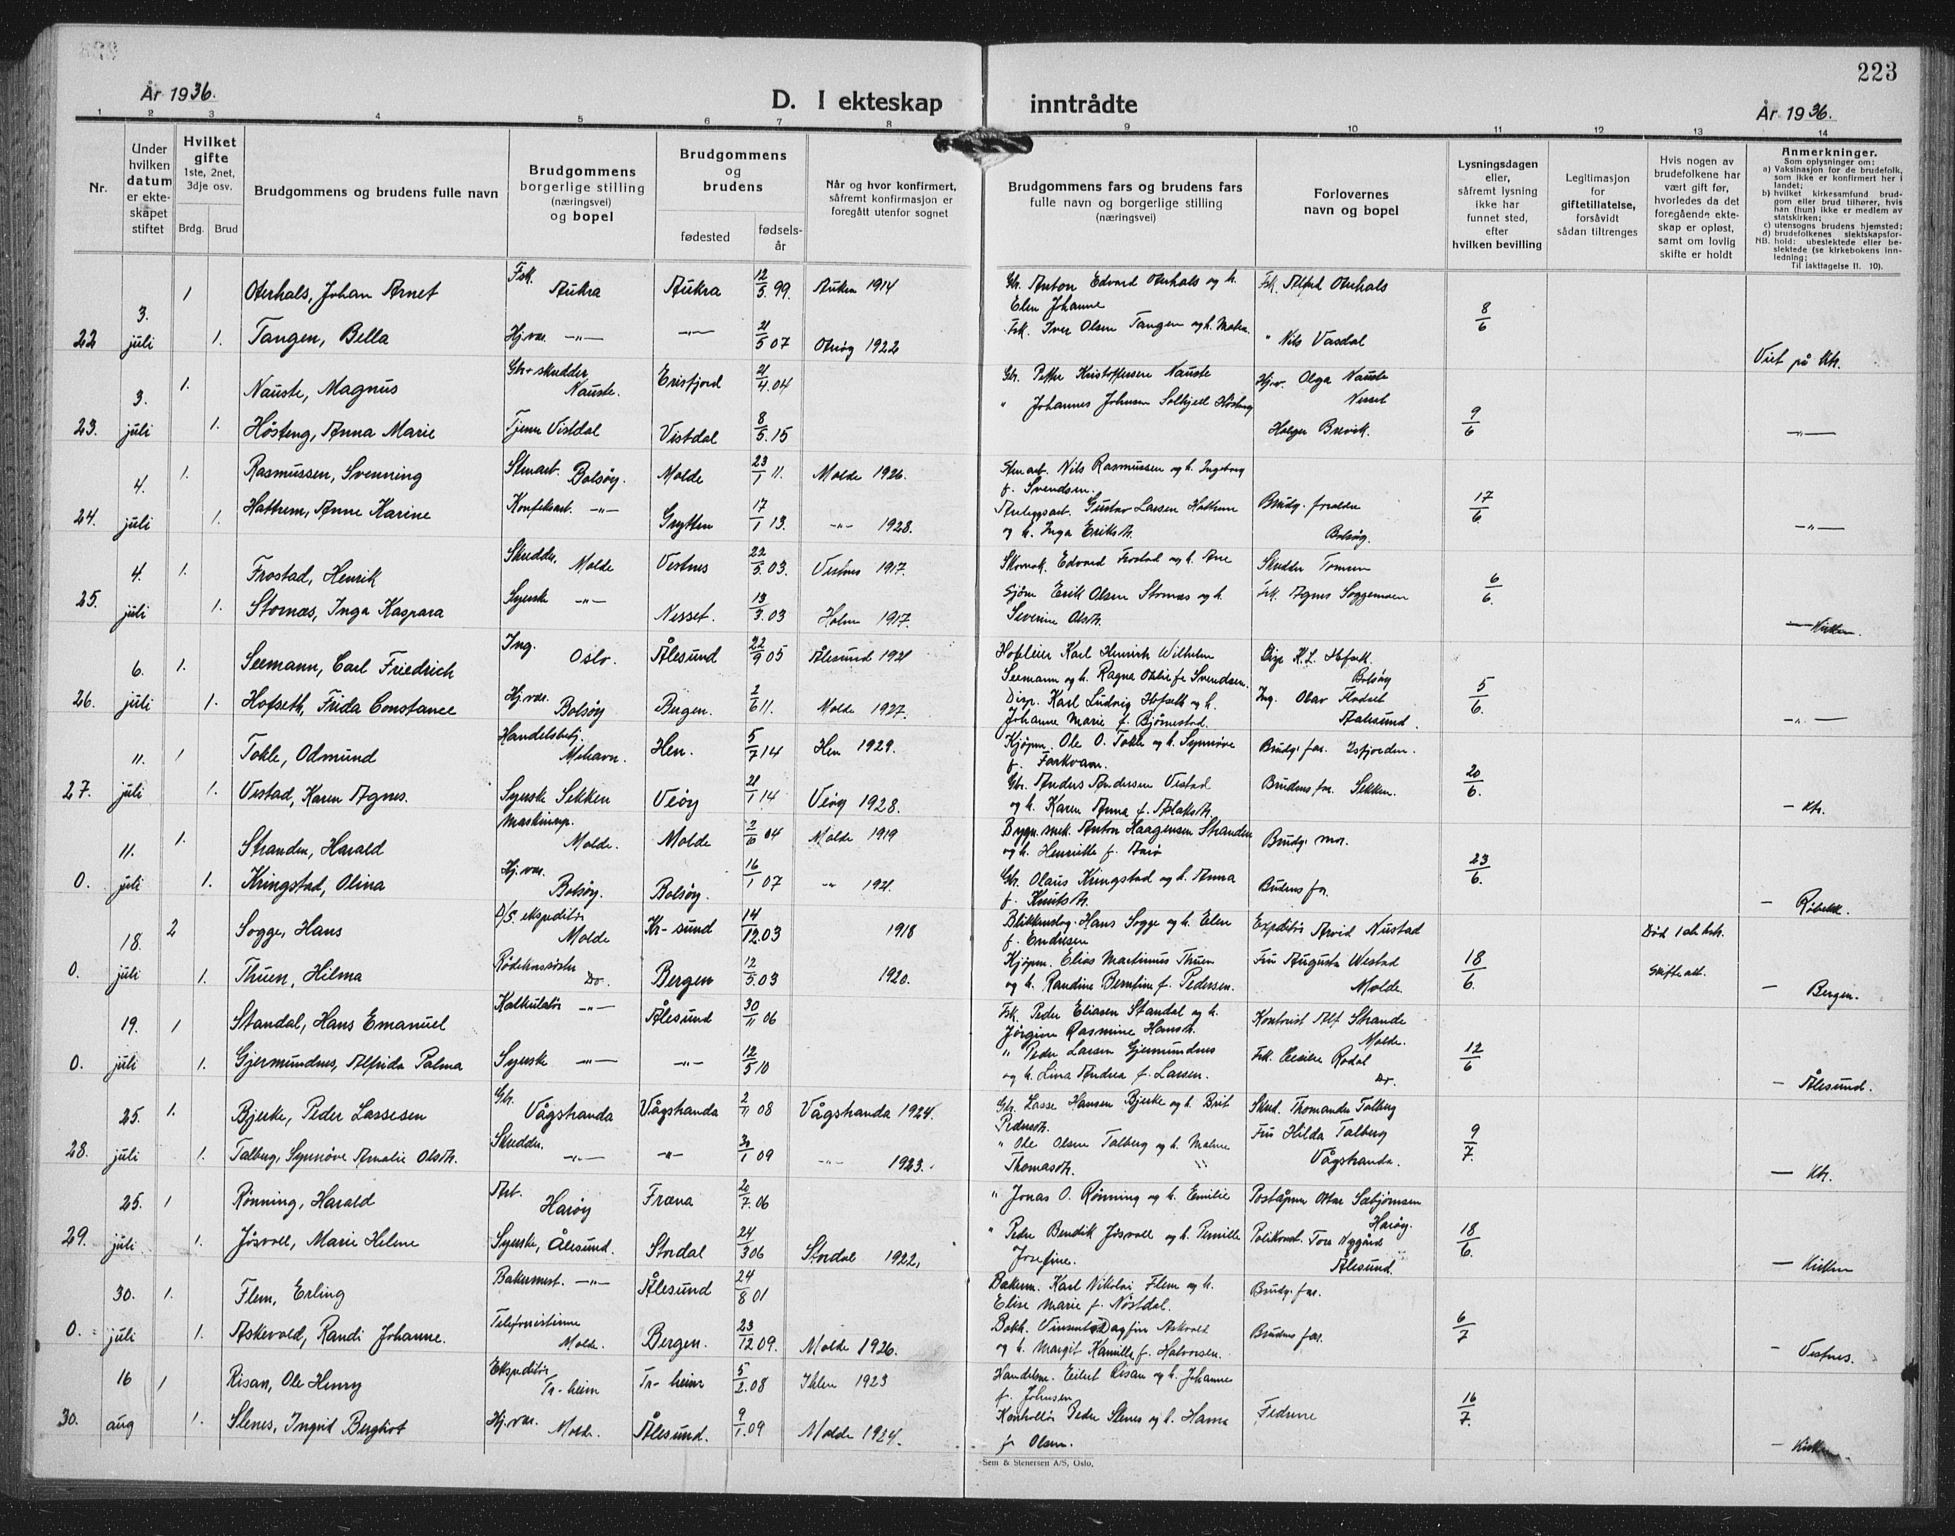 223
År 1936.
D. I ekteskap inntrådte
År 1936.
1 2 3 4 5 6 7 8 9 10 11 12 13 14
Nr.
Under hvilken datum er ekteskapet stiftet
Hvilket gifte 1ste, 2net, 3dje osv.
Brdg. Brud
Brudgommens og brudens fulle navn
Brudgommens borgerlige stilling (næringsvei) og bopel
Brudgommens og brudens
fødested
fødselsår
Når og hvor konfirmert, såfremt konfirmasjon er foregått utenfor sognet
Brudgommens fars og brudens fars fulle navn og borgerlige stilling (næringsvei)
Forlovernes navn og bopel
Lysningsdagen eller, såfremt lysning ikke har funnet sted, efter hvilken bevilling
Legitimasjon for giftetillatelse, forsåvidt sådan tiltrenges
Hvis nogen av brudefolkene har vært gift før, hvorledes da det foregående ekteskap er opløst, samt om lovlig skifte er holdt
Anmerkninger.
Som oplysninger om:
a) Vaksinasjon for de brudefolk, som ikke er konfirmert her i landet;
b) hvilket kirkesamfund brudgom eller brud tilhører, hvis han (hun) ikke er medlem av statskirken;
c) utensogns brudens hjemsted;
d) brudefolkenes slektskapsforhold: ubeslektede eller beslektede (se kirkebokens innledning;
NB.
Til iakttagelse II. 10).
3. 1 Oterhals, Johan Arnet Fsk. Aukra Aukra 12/5 99. Aukra 1914 Gb. Anton Edvard Oterhals og h. Elen Johanne Fsk. Alfred Oterhals
22 juli 1. Tangen, Bella Hj.vær. -"- -"- 21/5 07 Otrøy 1922 Fsk. Iver Olsen Tangen og h. " Nils Vasdal 8/6 Viet på ktr.
3. 1. Nauste, Magnus Gbr skredder Nauste. Erisfjord 21/4.04 Gb. Petter Kristoffersen Nauste Hjv. Olga Nauste Nesset
23. juli 1. Høsteng, Anna Marie Tjener Vistdal Vistdal 8/5.15 " Johannes Johnsen Solhjell Høsteng Holger Brevik. 9/6 -"-
4. 1. Rasmussen, Svenning Stenarb. Bolsøy. Molde 23/1 11. Molde 1926. Stenarb. Nils Rasmussen og h. Ingeborg f. Svendsen.
24. juli 1. Hattrem, Anne Karine Konfeksarb. -"- Grytten 17/1 13. -"- 1928. Anleggsarb. Gustav Larsen Hattrem og h. Inga Eriksdt. Brudg. foreldre Bolsøy. 17/6 -"-
4. 1. Frostad, Henrik Skredder, Molde Vestnes 22/5.03. Vestnes 1917. Skomak. Edvard Frostad og h. Ane Skredder
25. juli 1. Stornæs, Inga Kaspara Syerske -"- Nesset. 13/3.03 Holm 1917. Gjørm Erik Olsen Stornæs og h. Severine Olsdt. Frk. Agnes Soggemoen 6/6. - Kirken.
6. 1. Seemann, Carl Friedrich Ing. Oslo. Ålesund 22/9 05 Ålesund 1921 Hofeier Karl Henrich Wilhelm Seemann og h. Ragna Othilie f. Svendsen. Disp K.L. Hofseth Bolsøy
26. juli 1. Hofseth, Frida Constance Hj.vær. Bolsøy Bergen. 2/6 11. Molde 1927. Disp. Karl Ludvig Hofseth og h. Johanne Marie f. Bjørnestad. Ing. Olav Aalesund. 5/6. -"-
11. 1 Tokle, Odmund Handelsbetj. Mehavn. Hen. 5/7 14 Hen 1929. Kjøpm. Ole O. Tokle og h. Synnøve f. Farkvam. Brudg. far. Isfjorden.
27. juli 1. Vestad, Karen Agnes. Syerske Sekken Veøy 21/1 14 Veøy 1928. Gb. Anders Andersen Vestad og h. Karen Anna f. Aslaksdt. Brudens far. Sekken. 20/6. - ktr.
11. 1. Stranden, Harald Maskinrep. Molde. Molde 2/6 04 Molde 1919 Bygn.snek. Anton Haagensen Stranden og h. Henriette f. Aarø Brudg. mor.
0. juli 1. Kringstad, Olina Hj.vær. Bolsøy. Bolsøy. 16/1 07 -"- 1921. Gb. Olaus Kringstad og h. Anna f. Knutsdt. Brudens far. 23/6. - Røbekk.
18. 2 Sogge, Hans D/S. ekspeditør Molde Kr-sund 14/12.03 1918 Blikkenslag. Hans Sogge og h. Elen f. Endresen Expeditør Arvid Nustad Død
0. juli 1. Thuen, Hilma Rødekorssøster Do. Bergen 12/5.03 1920. Kjøpm. Elias Martinus Thuen og h. Randine Berntine f. Pedersen. Fru Augusta Westad Molde. 18/6. Skifte - Bergen.
19. 1 Standal, Hans Emanuel Kalkulatør -"- Ålesund 30/11 06 Fsk. Peder Eliasen Standal og h. Jørgine Rasmine Hansdt. Kontorist Alf Strande Molde.
0. juli 1. Gjermundnes, Alfrida Palma Syerske -"- -"- 12/5 10 " Peder Larsen Gjermundnes og h. Lina Andrea f. Larsen. Frk. Cecilie Rødal Do. 12/6 - Ålesund.
25. 1. Bjerke, Peder Lassesen Gbr. Vågstranda Vågstranda 2/11 08 Vågstranda 1924. Gbr. Lasse Hansen Bjerke og h. Brit Pedersdt. Skred. Thomander Talberg
28. juli 1. Talberg, Synnøve Amalie Olsdt. Skredder. -"- -"- 30/1 09 -"- 1923. " Ole Olsen Talberg og h. Malene Thomasdt. Fru Hilda Talberg Vågstranda. 9/7. - ktr.
25. 1 Rønning, Harald Arb. Harøy Fræna 20/7.06 " Jonas O. Rønning og h. Emilie Poståpner Ottar Sæbjørnsen Harøy.
29. juli 1. Jøsvoll, Marie Helene Syerske, Ålesund. Stordal 24/3 06 Stordal 1922, " Peder Bendik Jøsvoll og h. Pernille Josefine. Politikonst. Tore Nygård Ålesund. 18/6. - Kirken
30. 1. Flem, Erling Bakermest. -"- Ålesund 24/8 01 Bakerm. Karl Nikolai Flem og h. Elise Marie f. Nøstdal. Brudg. far.
0. juli 1. Askevold, Randi Johanne. Telefonistinne Molde. Bergen. 23/12 09. Molde 1926. Bokh. Vinsents Dagfin Askvold og h. Margit Kamilla f. Halvorsen. Brudens far. 6/7 - Vestnes.
16 1 Risan, Ole Henry Ekspeditør Tr-heim Tr-heim 5/2.08 Ihlen 1923 Handelsm. Eilert Risan og h. Johanne f. Johnsen
30. aug 1. Slenes, Ingrid Bergliot Hj.vær. Molde. Ålesund. 9/1.09 Molde 1924. Kontrollør Peder Slenes og h. Hanna f. Olsen. Fedrene 16/7. - Kirken
Sem & Stenersen A/S, Oslo.